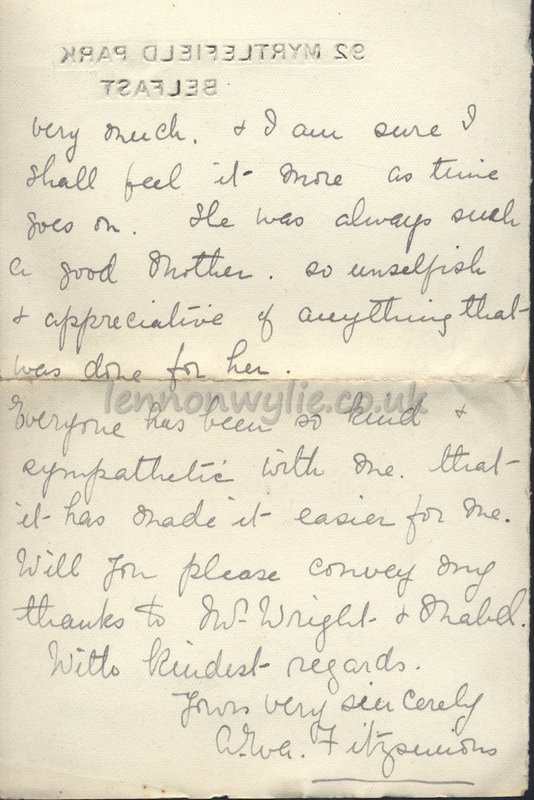 92 MYRTLEFIELD PARK
BELFAST
very much. & I am sure I
shall feel it more as time
goes on. She was always such
a good Mother. so unselfish
& appreciative of anything that
was done for her.
lennonwylie.co.uk
Everyone has been so kind &
sympathetic with me. that
it has made it easier for me.
Will you please convey my
thanks to Mr Wright & Mabel.
With kindest regards.
Yours very sincerely
Fitzsimons